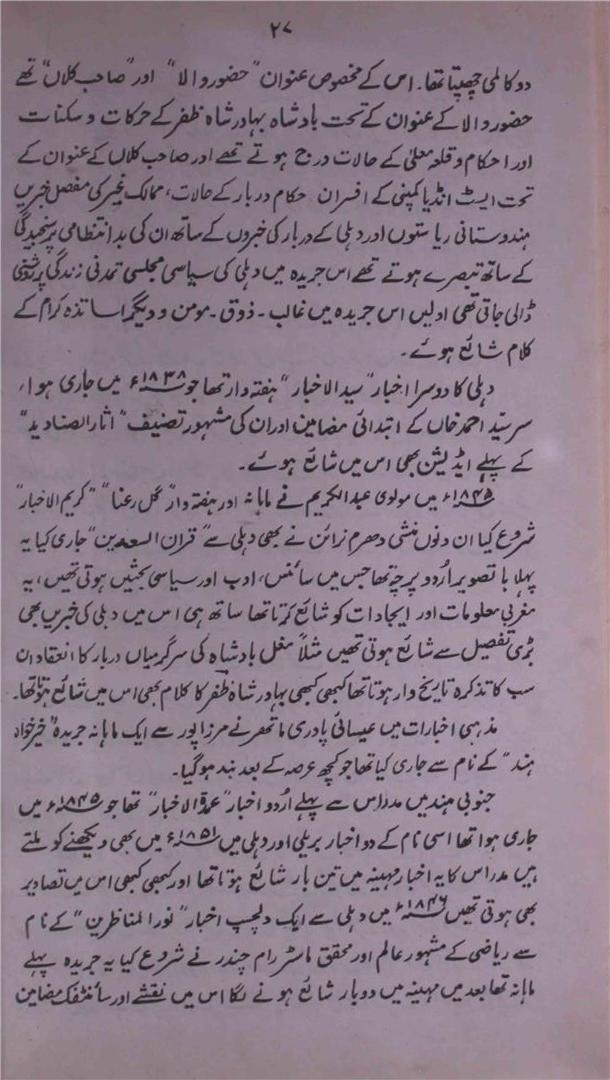 ۲۷
دو کالمی چھپتا تھا۔ اس کے مخصوص عنوان "حضور والا" اور "صاحب کلاں" تھے
حضور والا کے عنوان کے تحت بادشاہ بہادر شاہ ظفر کے حرکات و سکنات
اور احکام و قلعہ معلیٰ کے حالات درج ہوتے تھے اور صاحب کلاں کے عنوان کے
تحت ایسٹ انڈیا کمپنی کے افسران حکام دربار کے حالات، ممالک غیر کی مفصل خبریں
ہندوستانی ریاستوں اور دہلی کے دربار کی خبروں کے ساتھ ان کی بد انتظامی پر سنجیدگی
کے ساتھ تبصرے ہوتے تھے اس جریدہ میں دہلی کی سیاسی مجلسی تمدنی زندگی پر روشنی
ڈالی جاتی تھی اولیں اس جریدہ میں غالب۔ ذوق۔ مومن و دیگر اساتذہ کرام کے
کلام شائع ہوئے۔
دہلی کا دوسرا اخبار "سید الاخبار" ہفتہ وار تھا جو ۱۸۳۸ء میں جاری ہوا،
سر سید احمد خاں کے ابتدائی مضامین اور ان کی مشہور تصنیف "آثار الصنادید"
کے پہلے ایڈیشن بھی اس میں شائع ہوئے۔
۱۸۴۵ء میں مولوی عبد الکریم نے ماہانہ اور ہفتہ وار "گل رعنا" "کریم الاخبار"
شروع کیا ان دنوں منشی دھرم نرائن نے بھی دہلی سے "قران السعدین" جاری کیا یہ
پہلا با تصویر اُردو پرچہ تھا جس میں سائنس، ادب اور سیاسی بحثیں ہوتی تھیں، یہ
مغربی معلومات اور ایجادات کو شائع کرتا تھا ساتھ ہی اس میں دہلی کی خبریں بھی
بڑی تفصیل سے شائع ہوتی تھیں مثلاً مغل بادشاہ کی سرگرمیاں دربار کا انعقاد ان
سب کا تذکرہ تاریخ وار ہوتا تھا کبھی کبھی بہادر شاہ ظفر کا کلام بھی اس میں شائع ہوتا تھا۔
مذہبی اخبارات میں عیسائی پادری ماتھر نے مرزا پور سے ایک ماہانہ جریدہ "خیر خواہ
ہند" کے نام سے جاری کیا تھا جو کچھ عرصہ کے بعد بند ہو گیا۔
جنوبی ہند میں مدراس سے پہلے اُردو اخبار "عمدۃ الاخبار" تھا جو ۱۸۴۵ء میں
جاری ہوا تھا اسی نام کے دو اخبار بریلی اور دہلی میں ۱۸۵۱ء میں بھی دیکھنے کو ملتے
ہیں مدراس کا یہ اخبار مہینہ میں تین بار شائع ہوتا تھا اور کبھی کبھی اس میں تصاویر
بھی ہوتی تھیں ۱۸۴۶ء میں دہلی سے ایک دلچسپ اخبار "نور المناظرین" کے نام
سے ریاضی کے مشہور عالم اور محقق ماسٹر رام چندر نے شروع کیا یہ جریدہ پہلے
ماہانہ تھا بعد میں مہینہ میں دوبار شائع ہونے لگا اس میں نقشے اور سائنٹفک مضامین